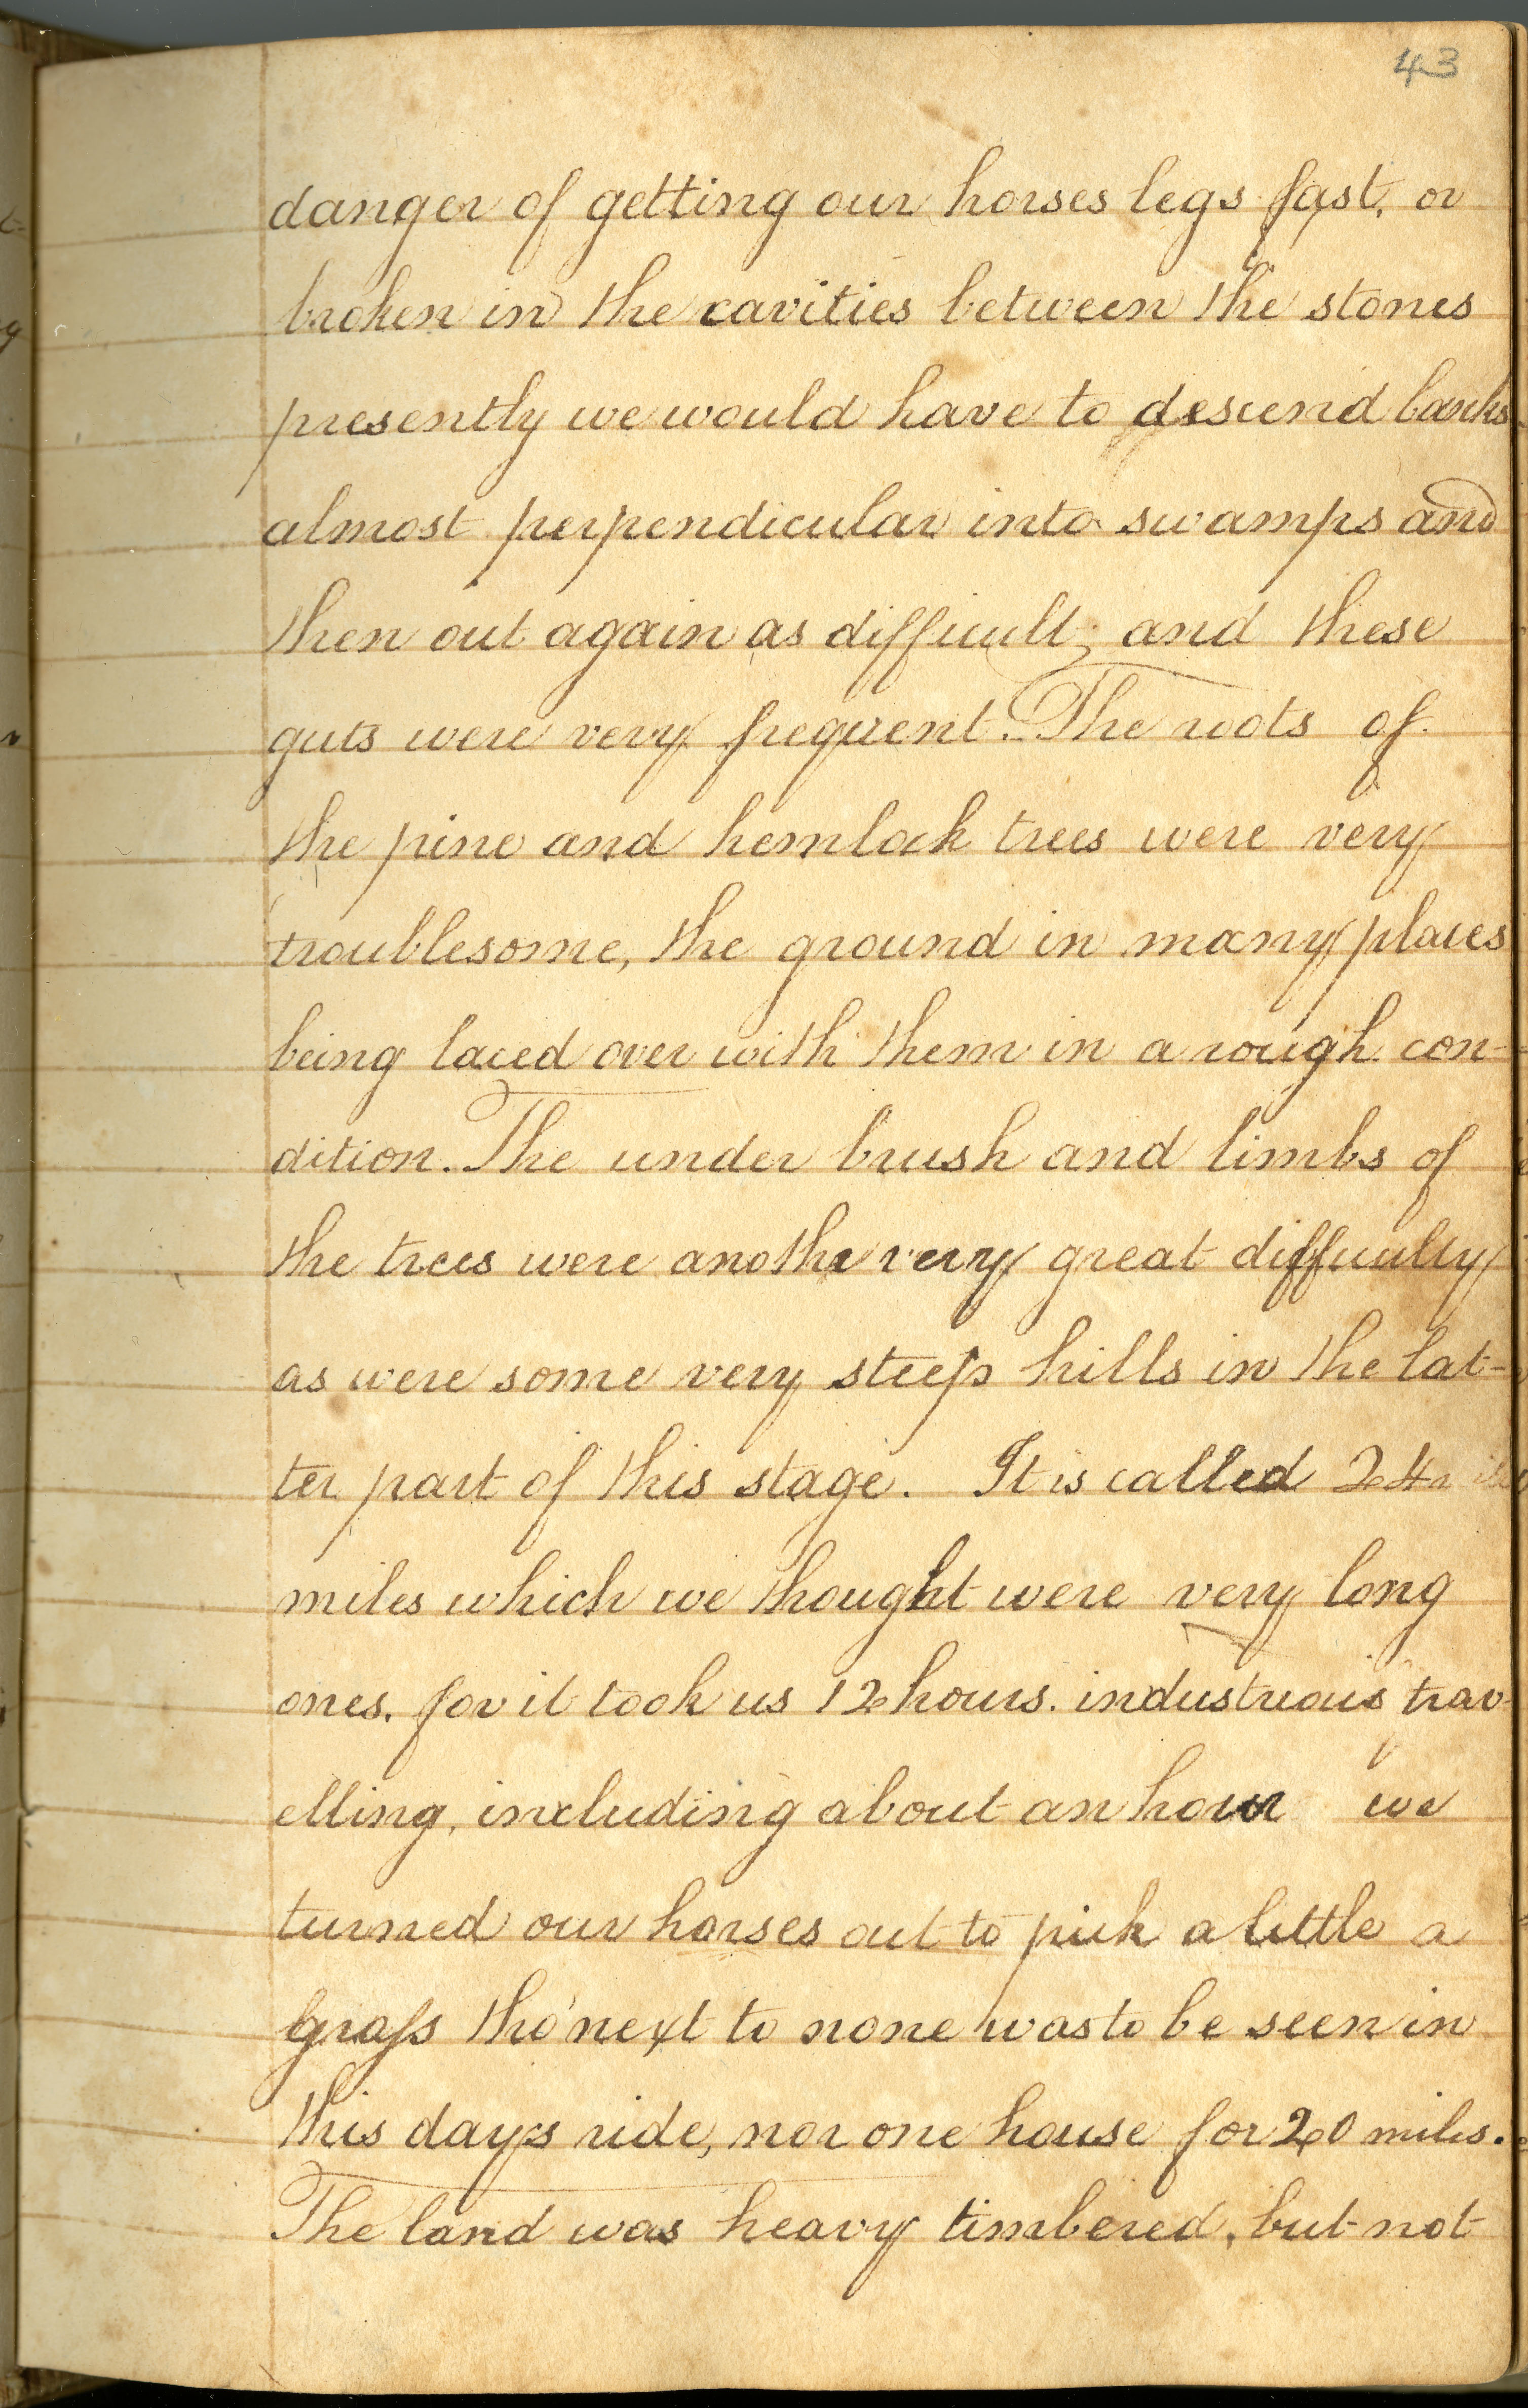 43
danger of getting our horses legs fast, or
broken in the cavities between the stones
presently we would have to descend banks
almost perpendicular into swamps and
then out again as difficult; and these
guts were very frequent. The roots of
the pine and hemlock trees were very
troublesome, the ground in many places
being laced over with them in a rough con-
dition. The under brush and limbs of
the trees were anothe very great difficulty
as were some very steep hills in the lat-
ter part of this stage. It is called 24
miles which we thought were very long
ones, for it took us 12 hours. industrious trav-
elling, including about an hour we
turned our horses out to pick a little a
grass tho' next to none was to be seen in
this days ride, nor one house for 20 miles.
The land was heavy timbered, but not